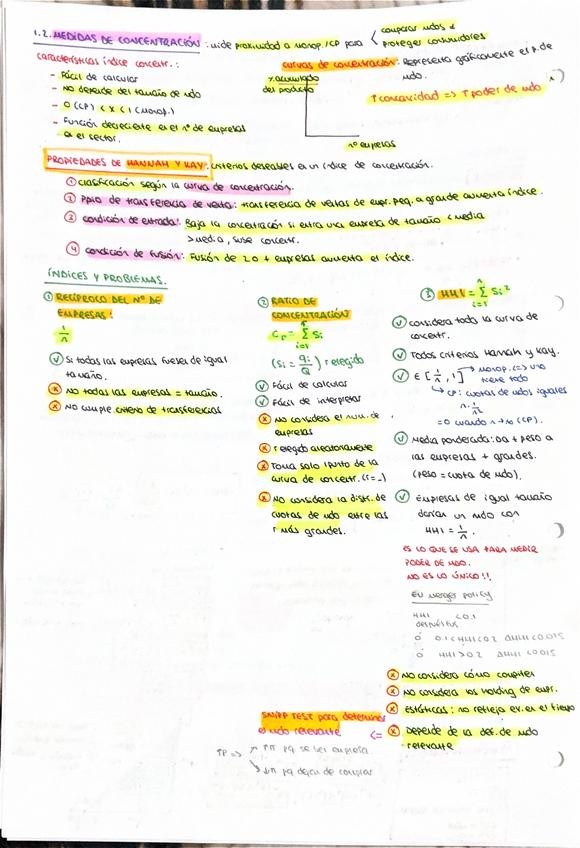 1.2. MEDIDAS DE CONCENTRACIÓN: mide proximidad a monop./CP para
comparar mdos x
proteger consumidores
características índice concentr.:
- Fácil de calcular
- No depende del tamaño de mdo
- 0 (CP) < x < 1 (Monop.)
- Función decreciente en el nº de empresas
en el sector.
curvas de concentración: Representa gráficamente el p. de
mdo.
% acumulado
del producto
nº empresas
↑ concavidad => ↑ poder de mdo
PROPIEDADES DE HANNAH Y KAY: criterios deseables en un índice de concentración.
① Clasificación según la curva de concentración.
② Ppio de transferencia de venta: transferencia de ventas de empr. peq. a grande aumenta índice.
③ condición de entrada: Baja la concentración si entra una empresa de tamaño < media
> media, sube concentr.
④ condición de fusión: Fusión de 2 o + empresas aumenta el índice.
ÍNDICES Y PROBLEMAS.
① RECÍPROCO DEL Nº DE
EMPRESAS:
1/n
Si todas las empresas fuesen de igual
tamaño.
No todas las empresas = tamaño.
No cumple criterio de transferencias
② RATIO DE
CONCENTRACIÓN
Cr = Σ Si
i=1
(Si = qi/Q) r elegido
Fácil de calcular
Fácil de interpretar
No considera el num. de
empresas
r elegido aleatoriamente
Toma solo 1 punto de la
curva de concentr. (r=_)
No considera la distr. de
cuotas de mdo entre las
r más grandes.
③ HHI = Σ Si²
i=1
considera toda la curva de
concentr.
Todos criterios Hannah y Kay.
∈ [1/n, 1] → monop. (=> uno
tiene todo
↳ CP: cuotas de mdos iguales
n · 1/n²
= 0 cuando n→∞ (CP).
Media ponderada: Da + peso a
las empresas + grandes.
(peso = cuota de mdo).
Empresas de igual tamaño
darían un mdo con
HHI = 1/n.
ES LO QUE SE USA PARA MEDIR
PODER DE MDO.
NO ES LO ÚNICO!!
EU merger policy
HHI < 0.1
después fus
ó 0.1<HHI<0.2 ΔHHI<0.025
ó HHI>0.2 ΔHHI<0.015
No considera cómo compiten
No considera los holding de empr.
Estáticas: no refleja ev. en el tiempo
Depende de la def. de mdo
relevante
<=
SNIPP TEST para determinar
el mdo relevante
↑P =>
↑π pq se ser empresa
↓π pq dejan de comprar